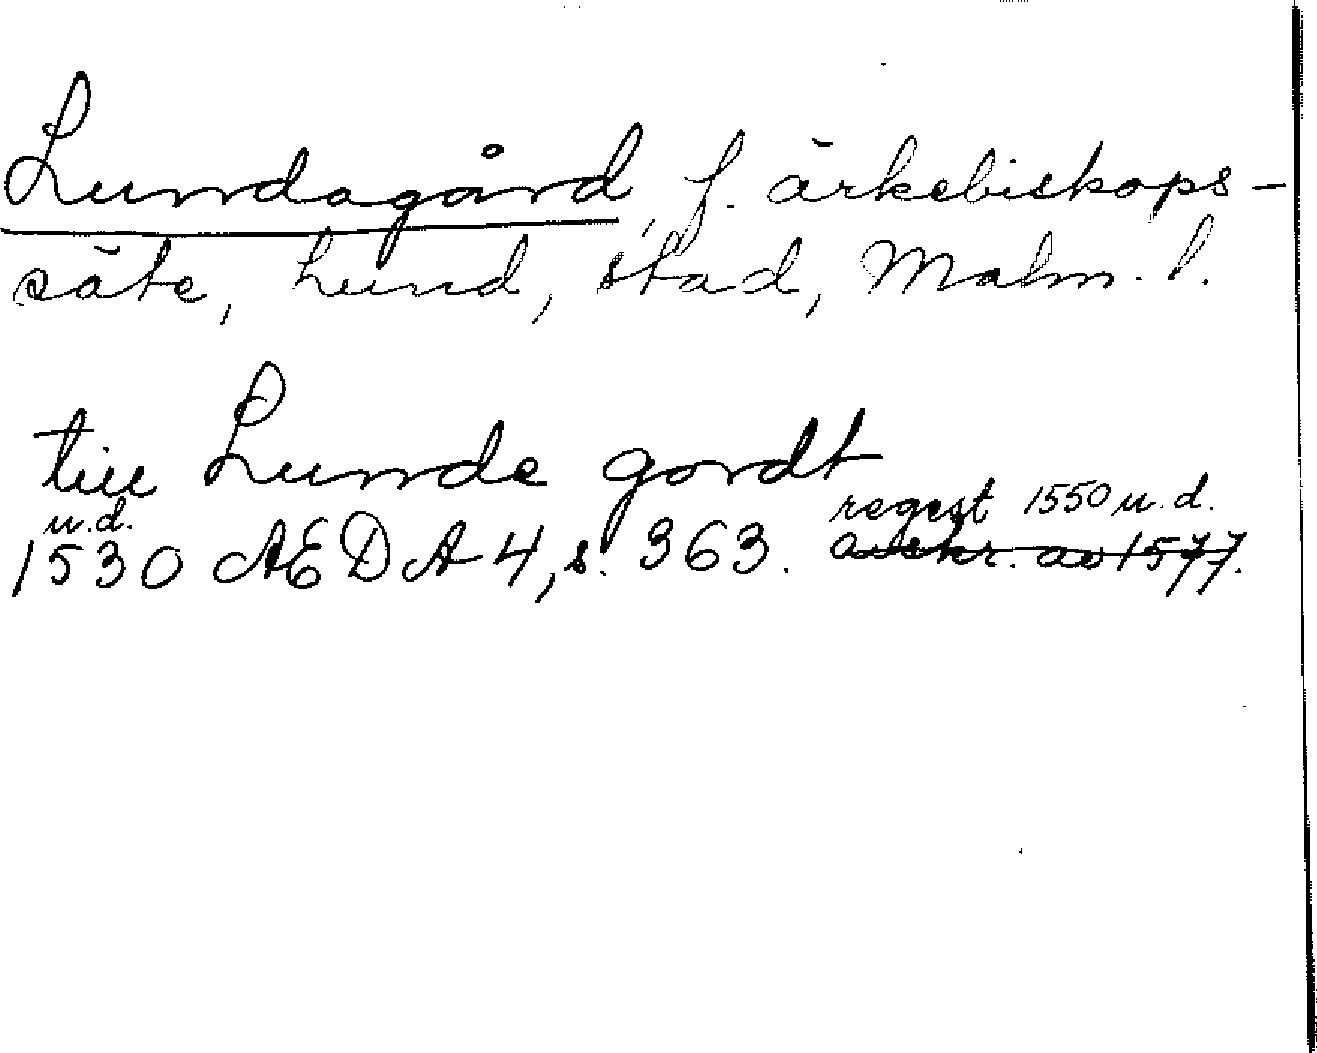 Lundagård, f. ärkebiskops-
säte, Lund, stad, Malm. l.
till Lunde gordt
u.d. regest 1550 u.d.
1530 AEDA 4, s. 363. avskr. av 1577.